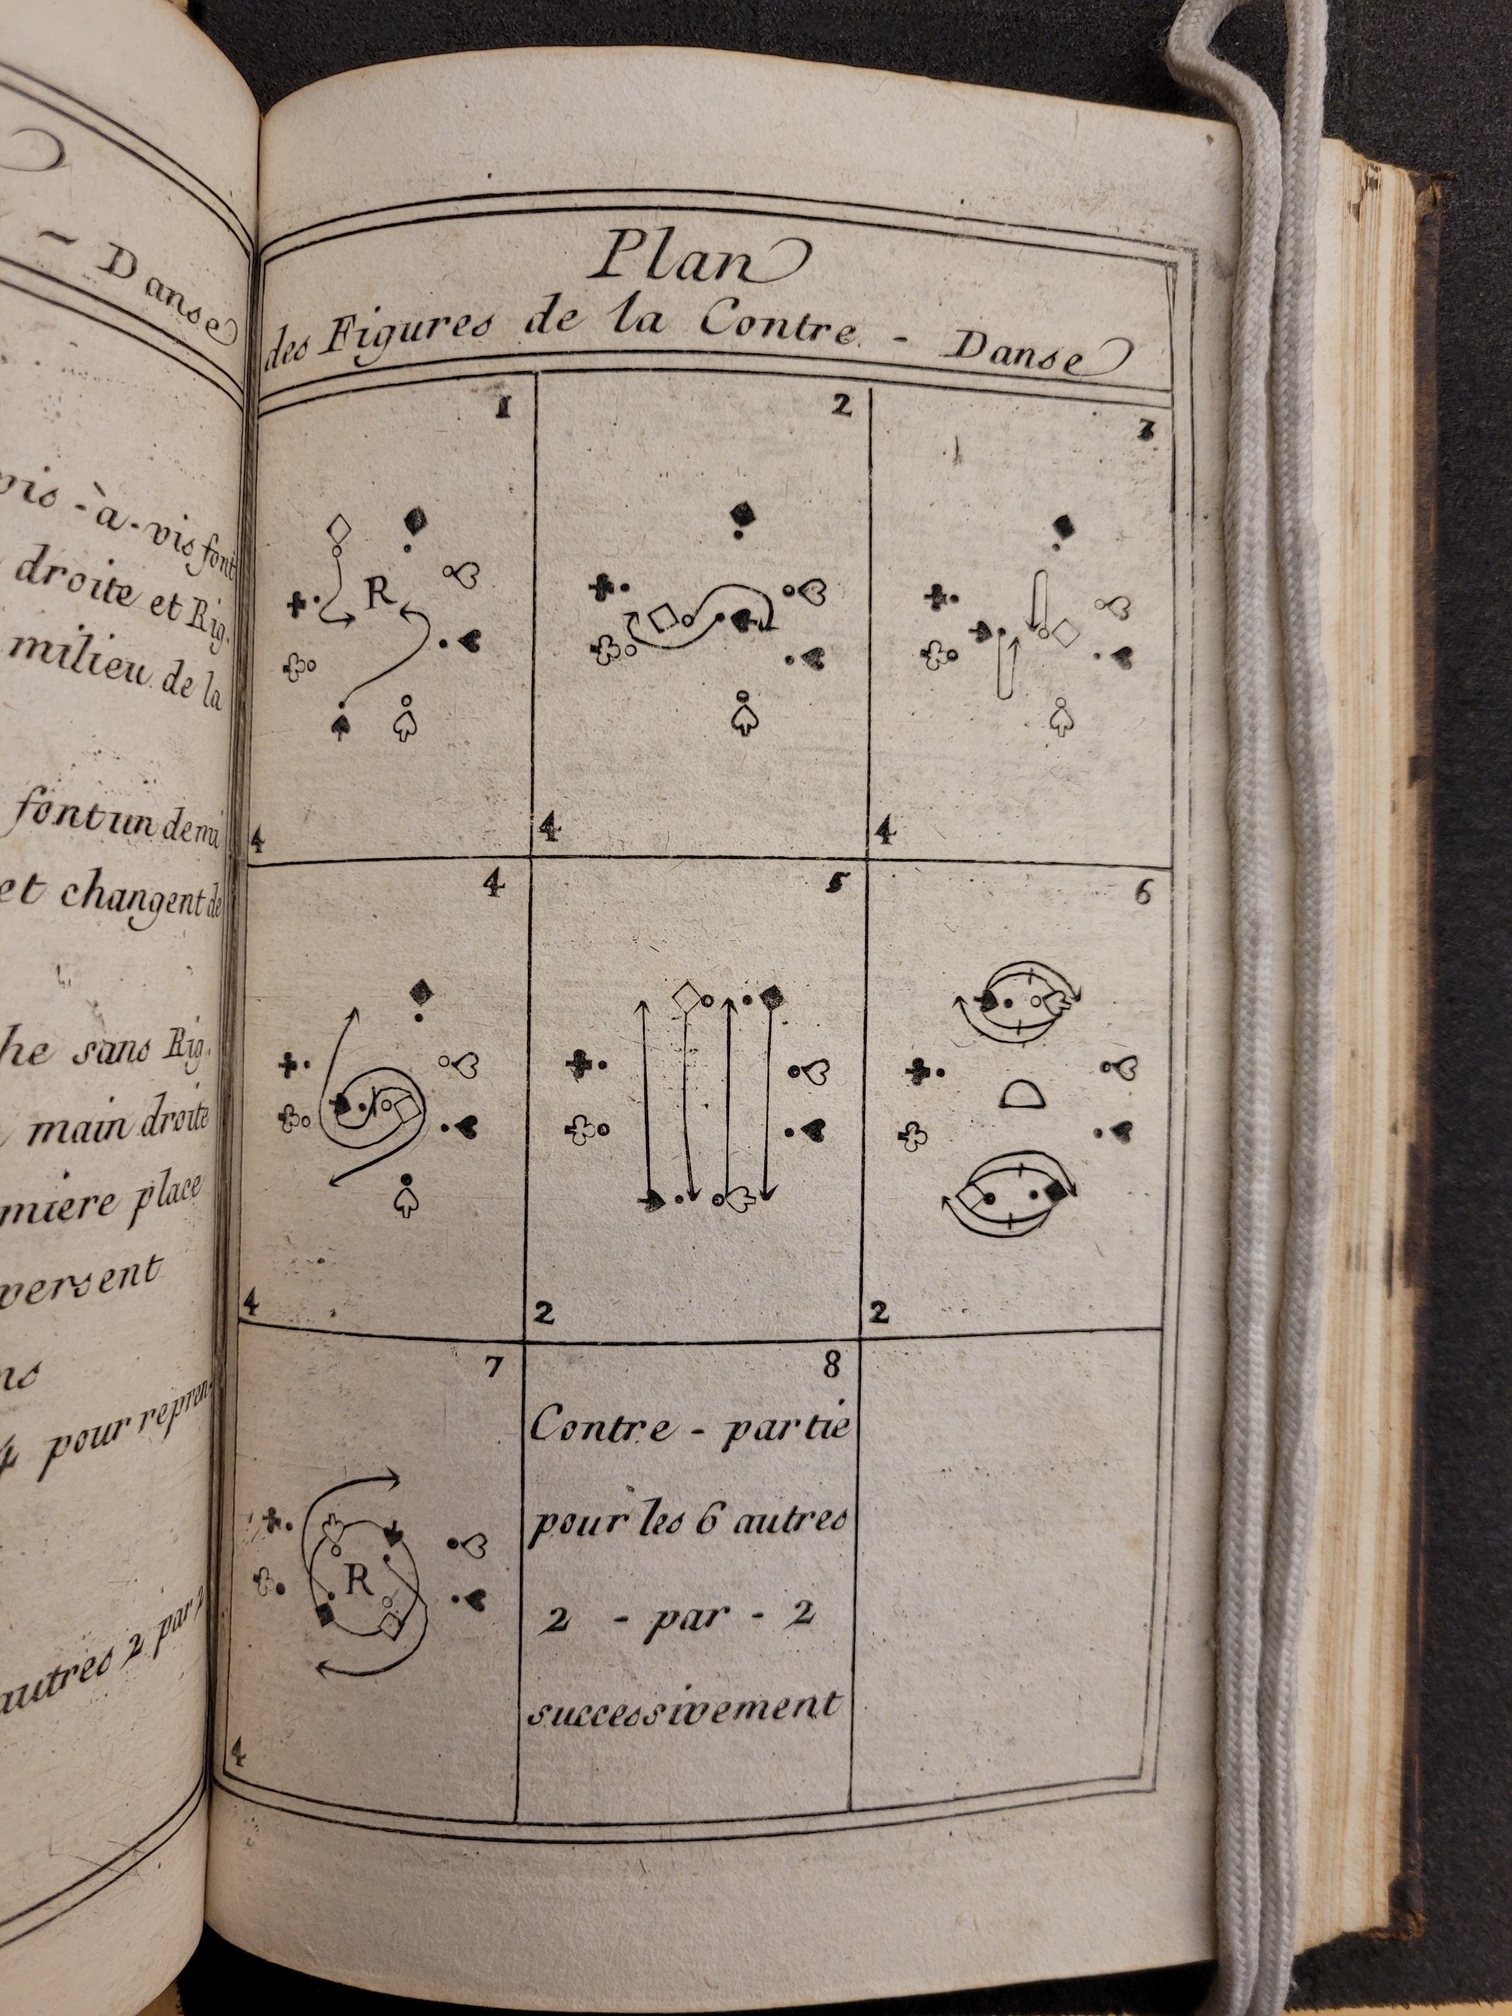 - Danse
vis-à-vis font
droite et Rig.
milieu de la
font un demi
et changent de
he sans Rig.
main droite
miere place
versent
ns
4 pour repren-
autres 2 par 2
Plan
des Figures de la Contre - Danse
1
R
4
2
4
3
4
4
4
5
2
6
2
7
R
4
8
Contre - partie
pour les 6 autres
2 - par - 2
successivement